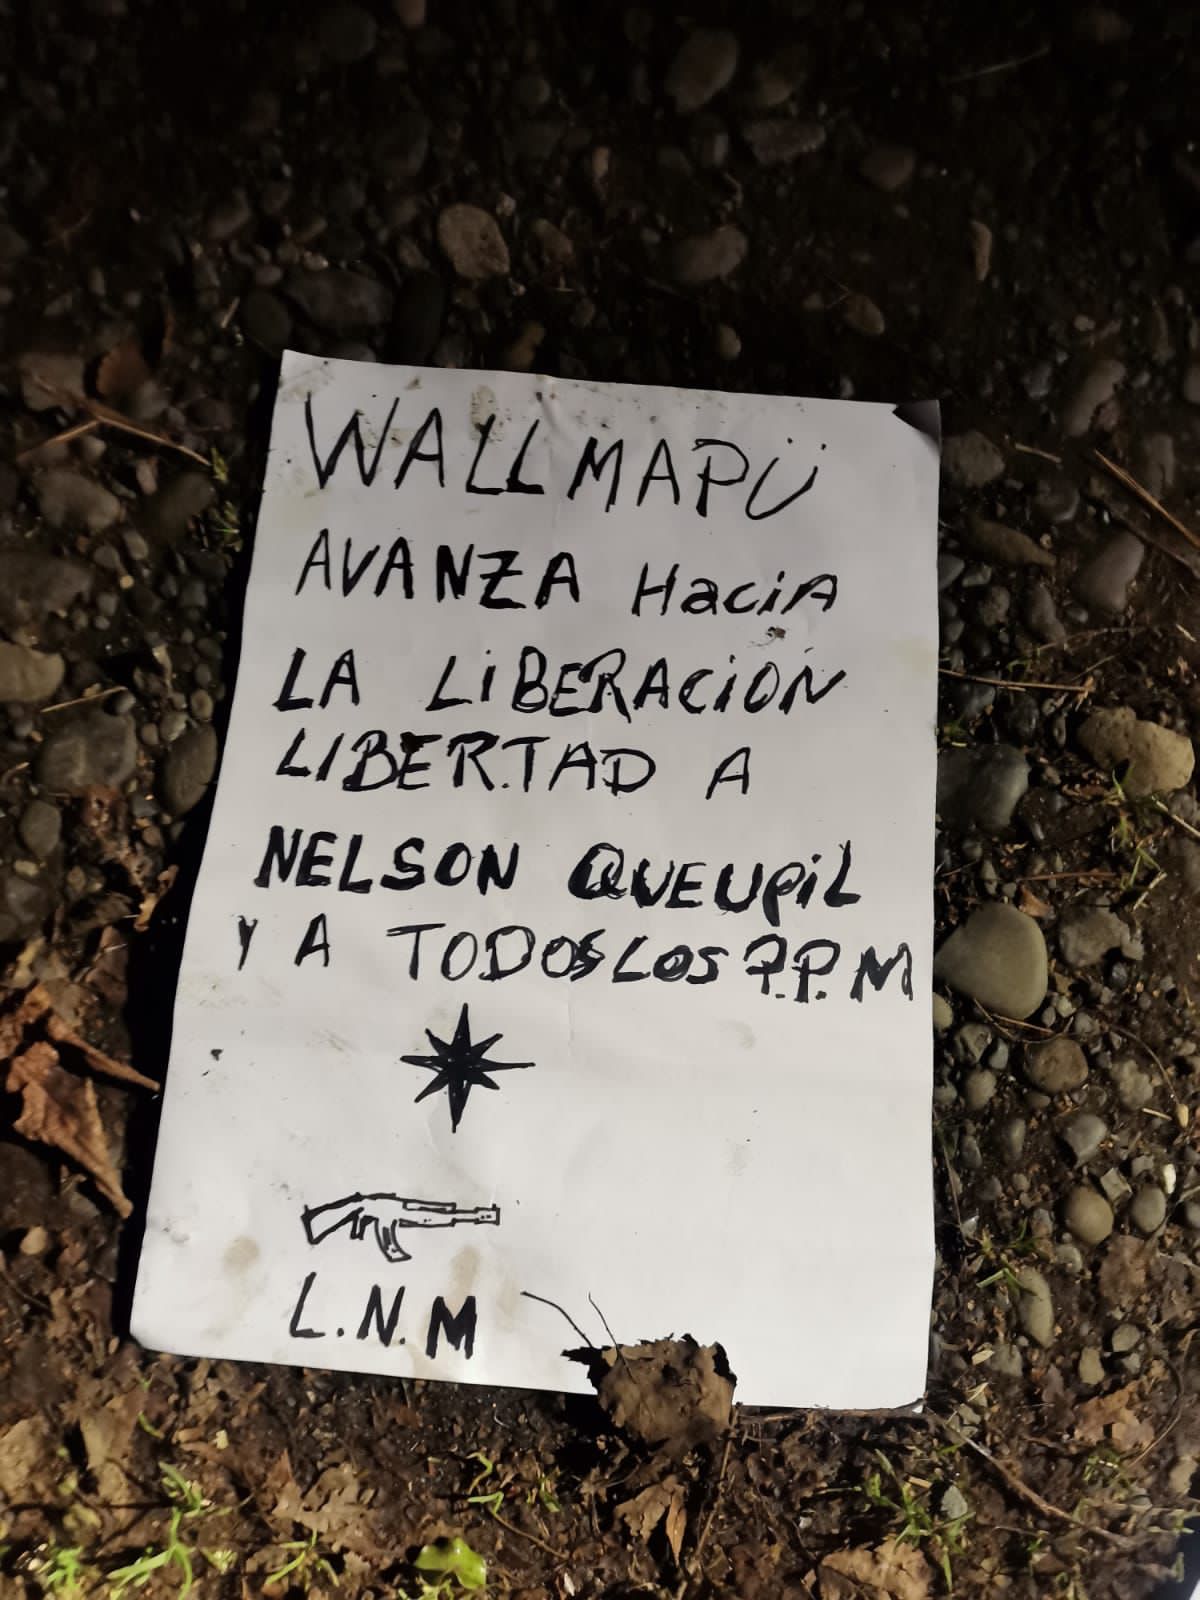 WALLMAPÜ
AVANZA HaciA
LA LiBERACiÓN
LIBERTAD A
NELSON QUEUPiL
Y A TODOS LOS P.P.M
L.N.M